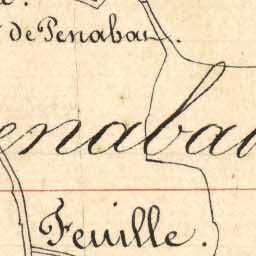 de Penabau.
enabau
Feuille.